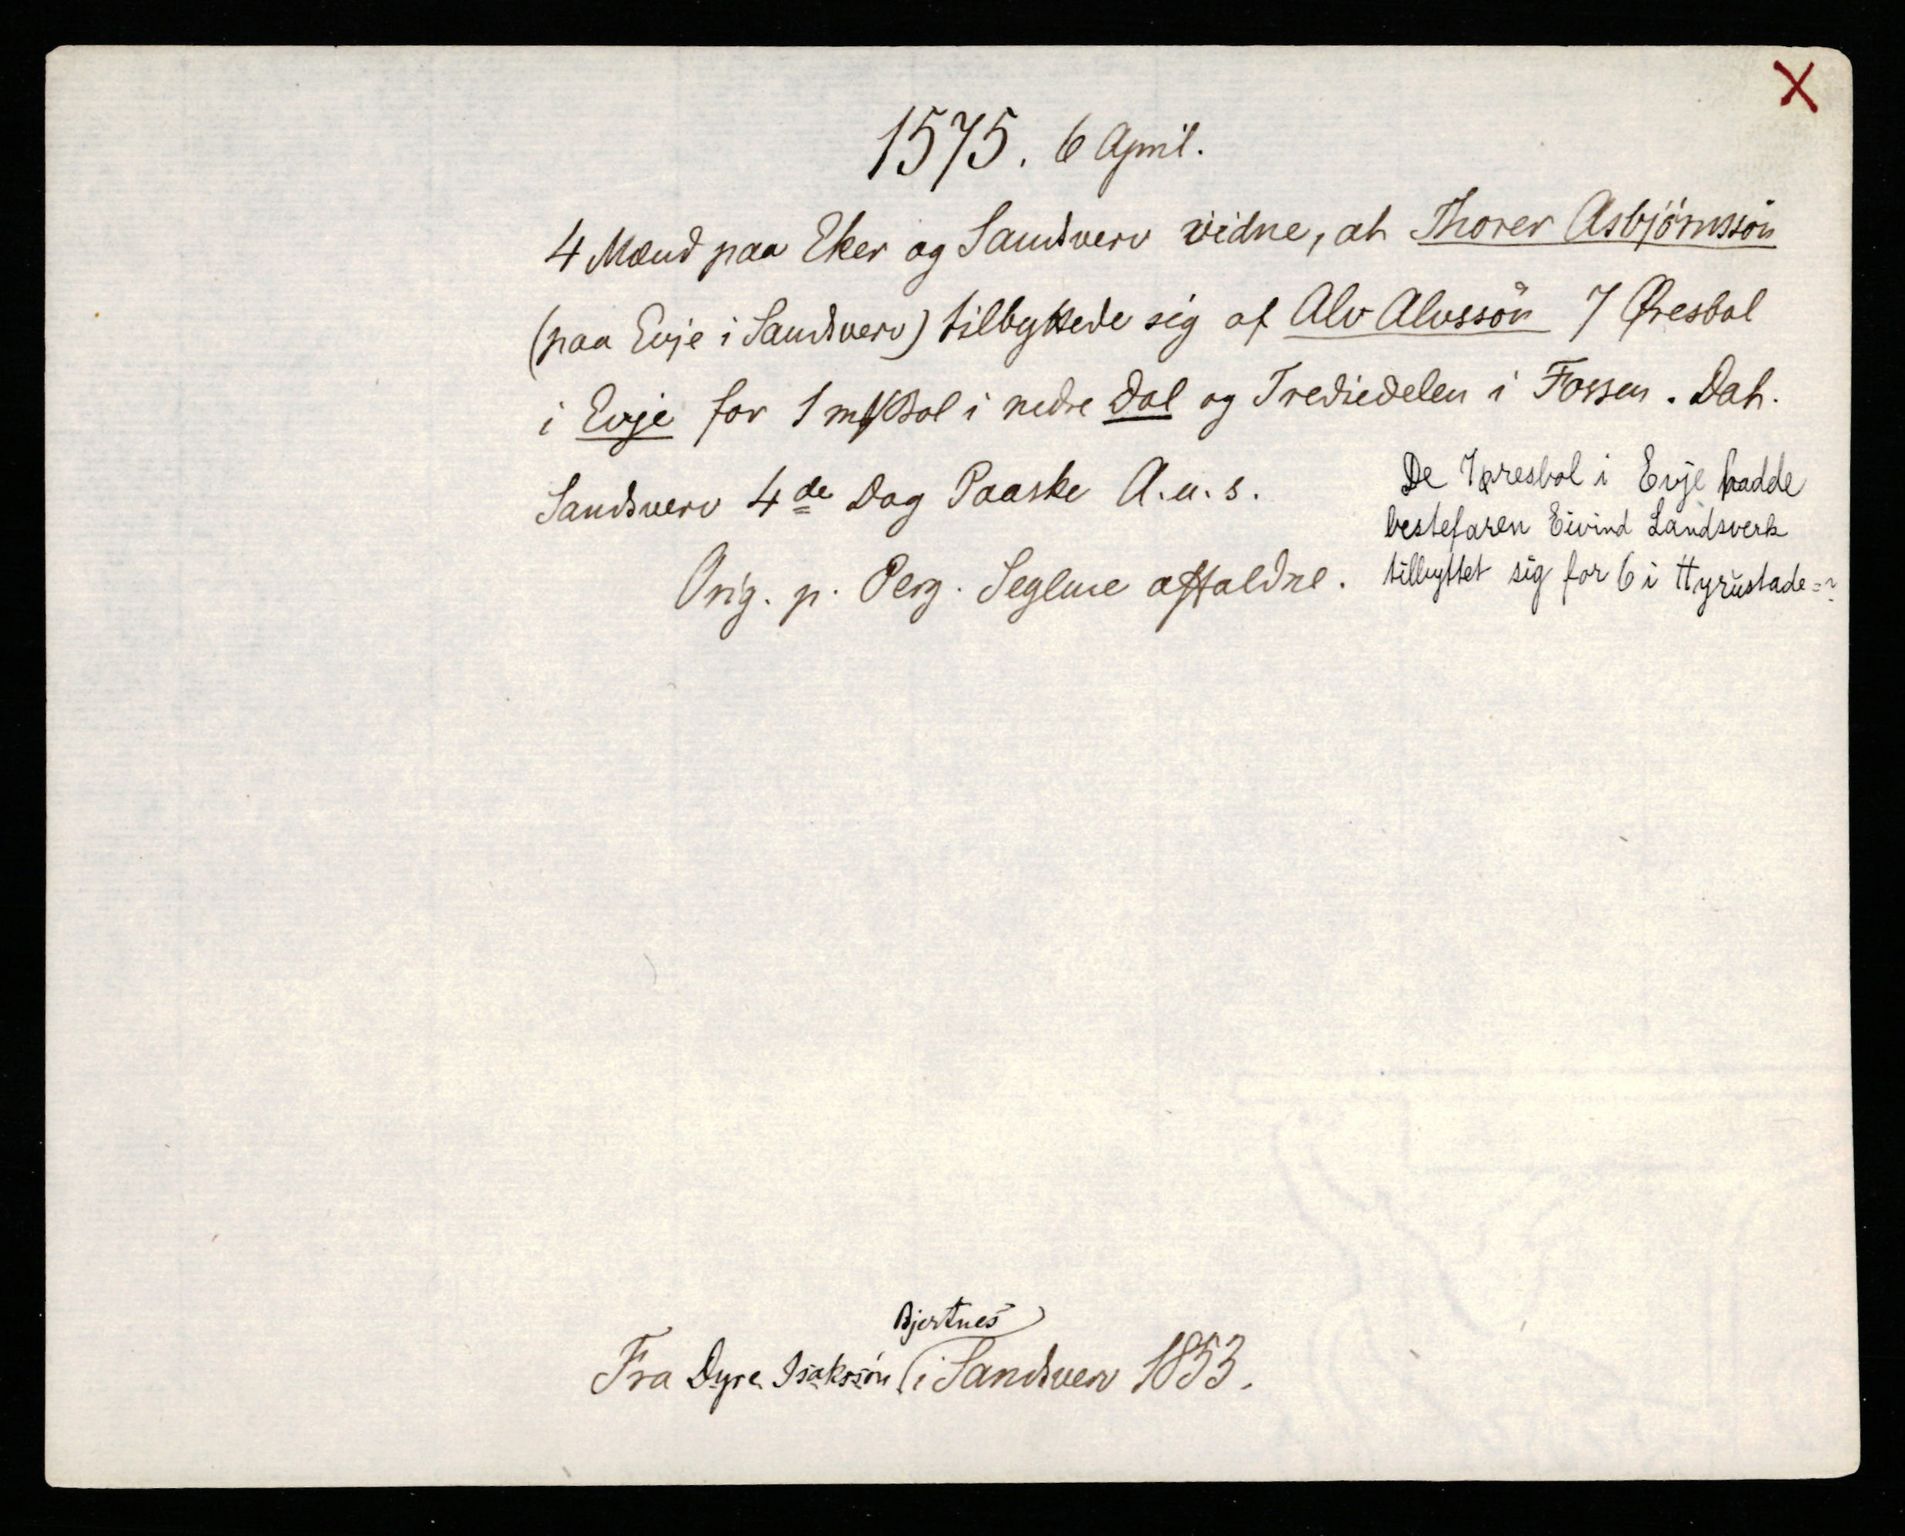 X
1575. 6 April.
4 Mænd paa Eker og Sandsverv vidne, at Thorer Asbjörnssön
(paa Evje i Sandsverv) tilbyttede sig af Alv Alvssön 7 Øresbol
i Evje for 1 mkBol i nedre Dal og Trediedelen i Fossen. Dat.
Sandsverv 4de Dag Paaske A. u. s.
Orig. p. Perg. Seglene affaldne.
De 7 øresbol i Evje hadde
bestefaren Eivind Landsverk
tilbyttet sig for 6 i Hyrustade=?
Bjertnes
Fra Dyre Isakssön i Sandsverv 1853.